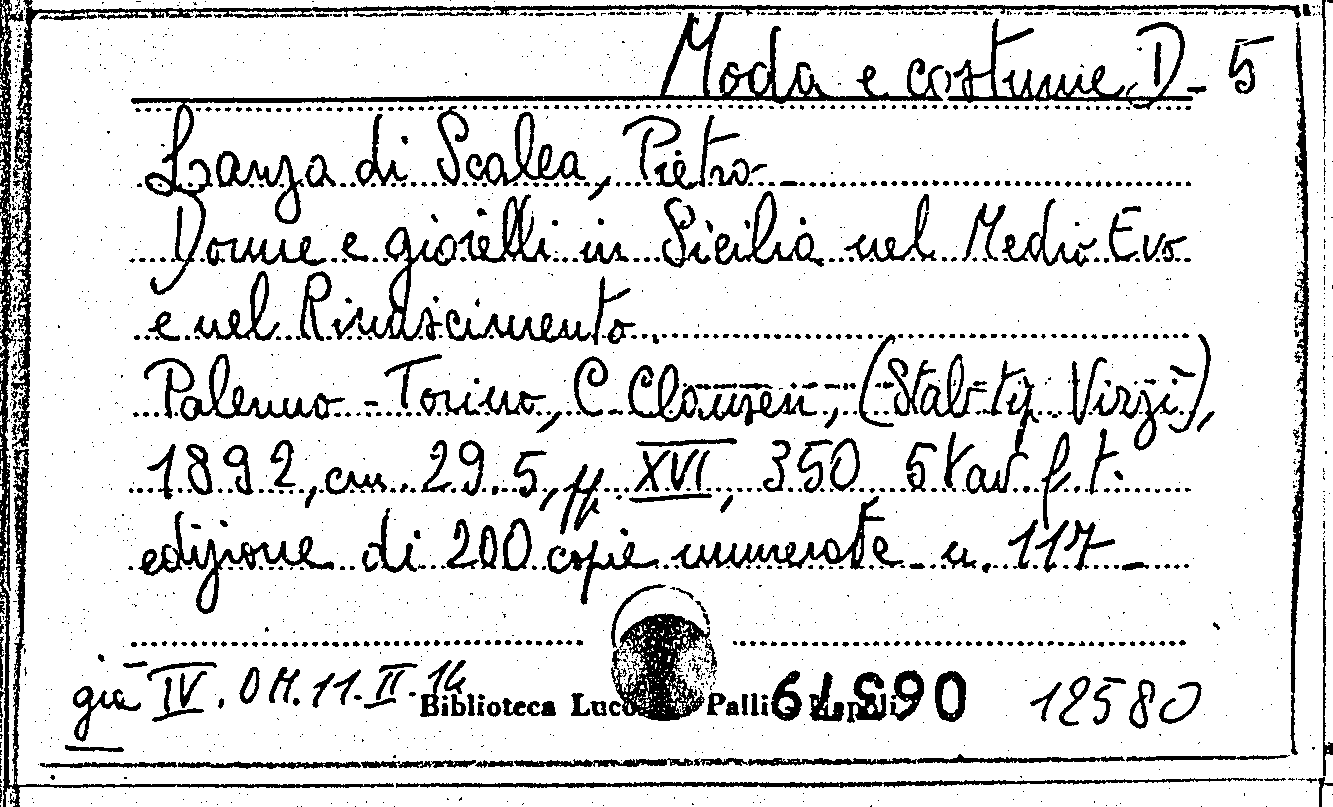 Moda e costume D - 5
Lanza di Scalea, Pietro -
Donne e gioielli in Sicilia nel Medio Evo
e nel Rinascimento.
Palermo - Torino, C. Clausen, (Stab. tip. Virzì),
1892, cm. 29.5, pp. XVI, 350, 5 tav. f. t.
edizione di 200 copie numerate - n. 117 -
già IV. OH. 11. II. 14
Biblioteca Palli Napoli
12580